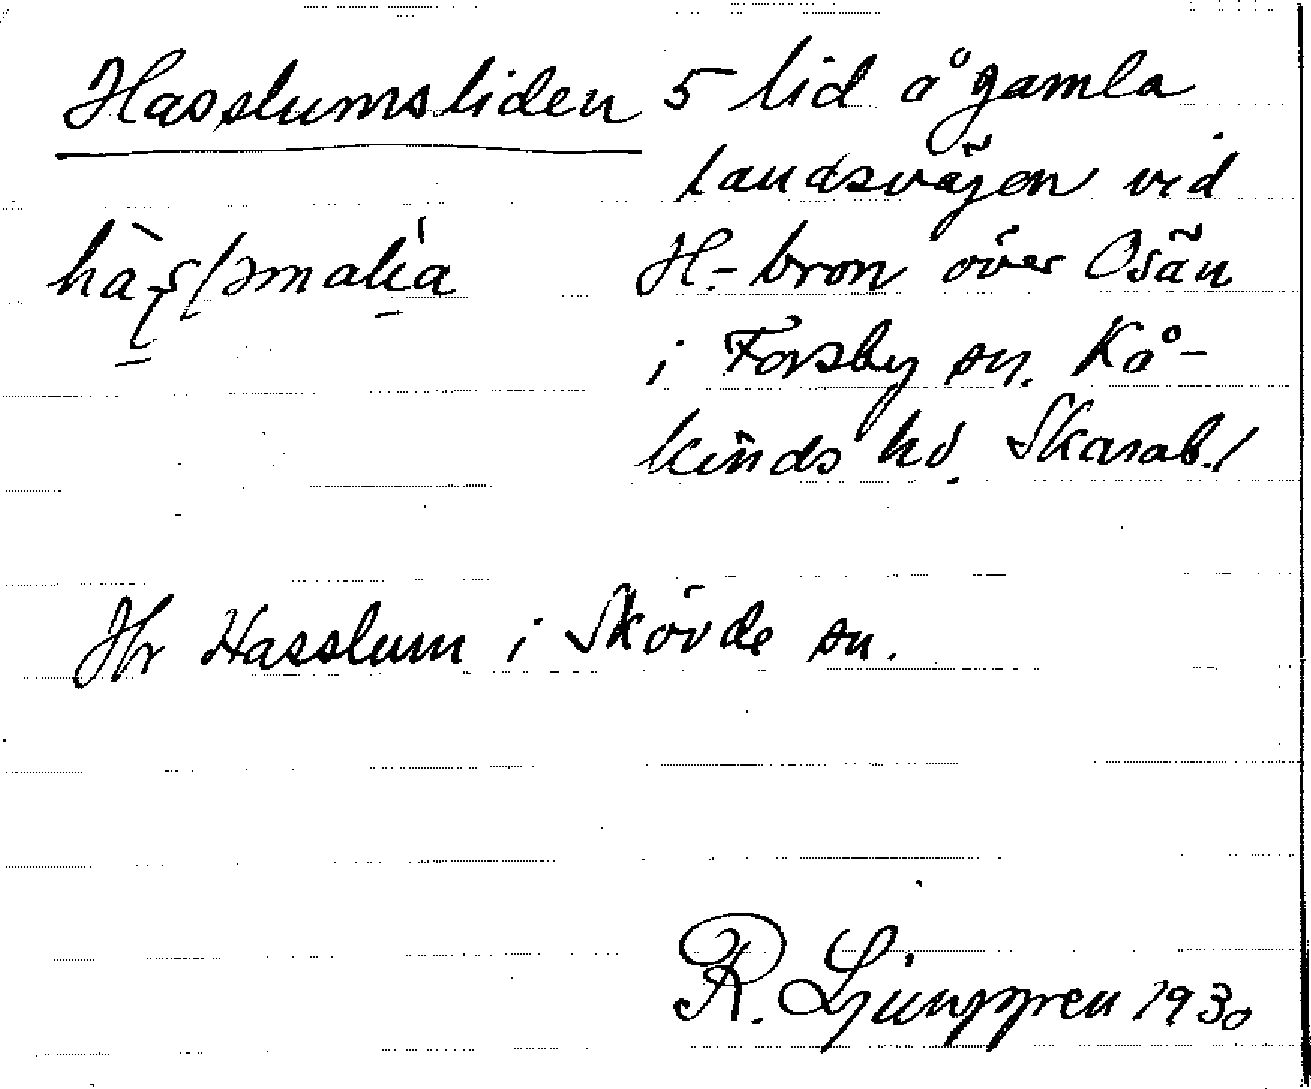 Hasslumsliden 5 lid å gamla
landsvägen vid
H.-bron över Ösan
i Forsby sn. Kå-
kinds hd. Skarab.l
Jfr Hasslum i Skövde sn.
R. Ljunggren 1930